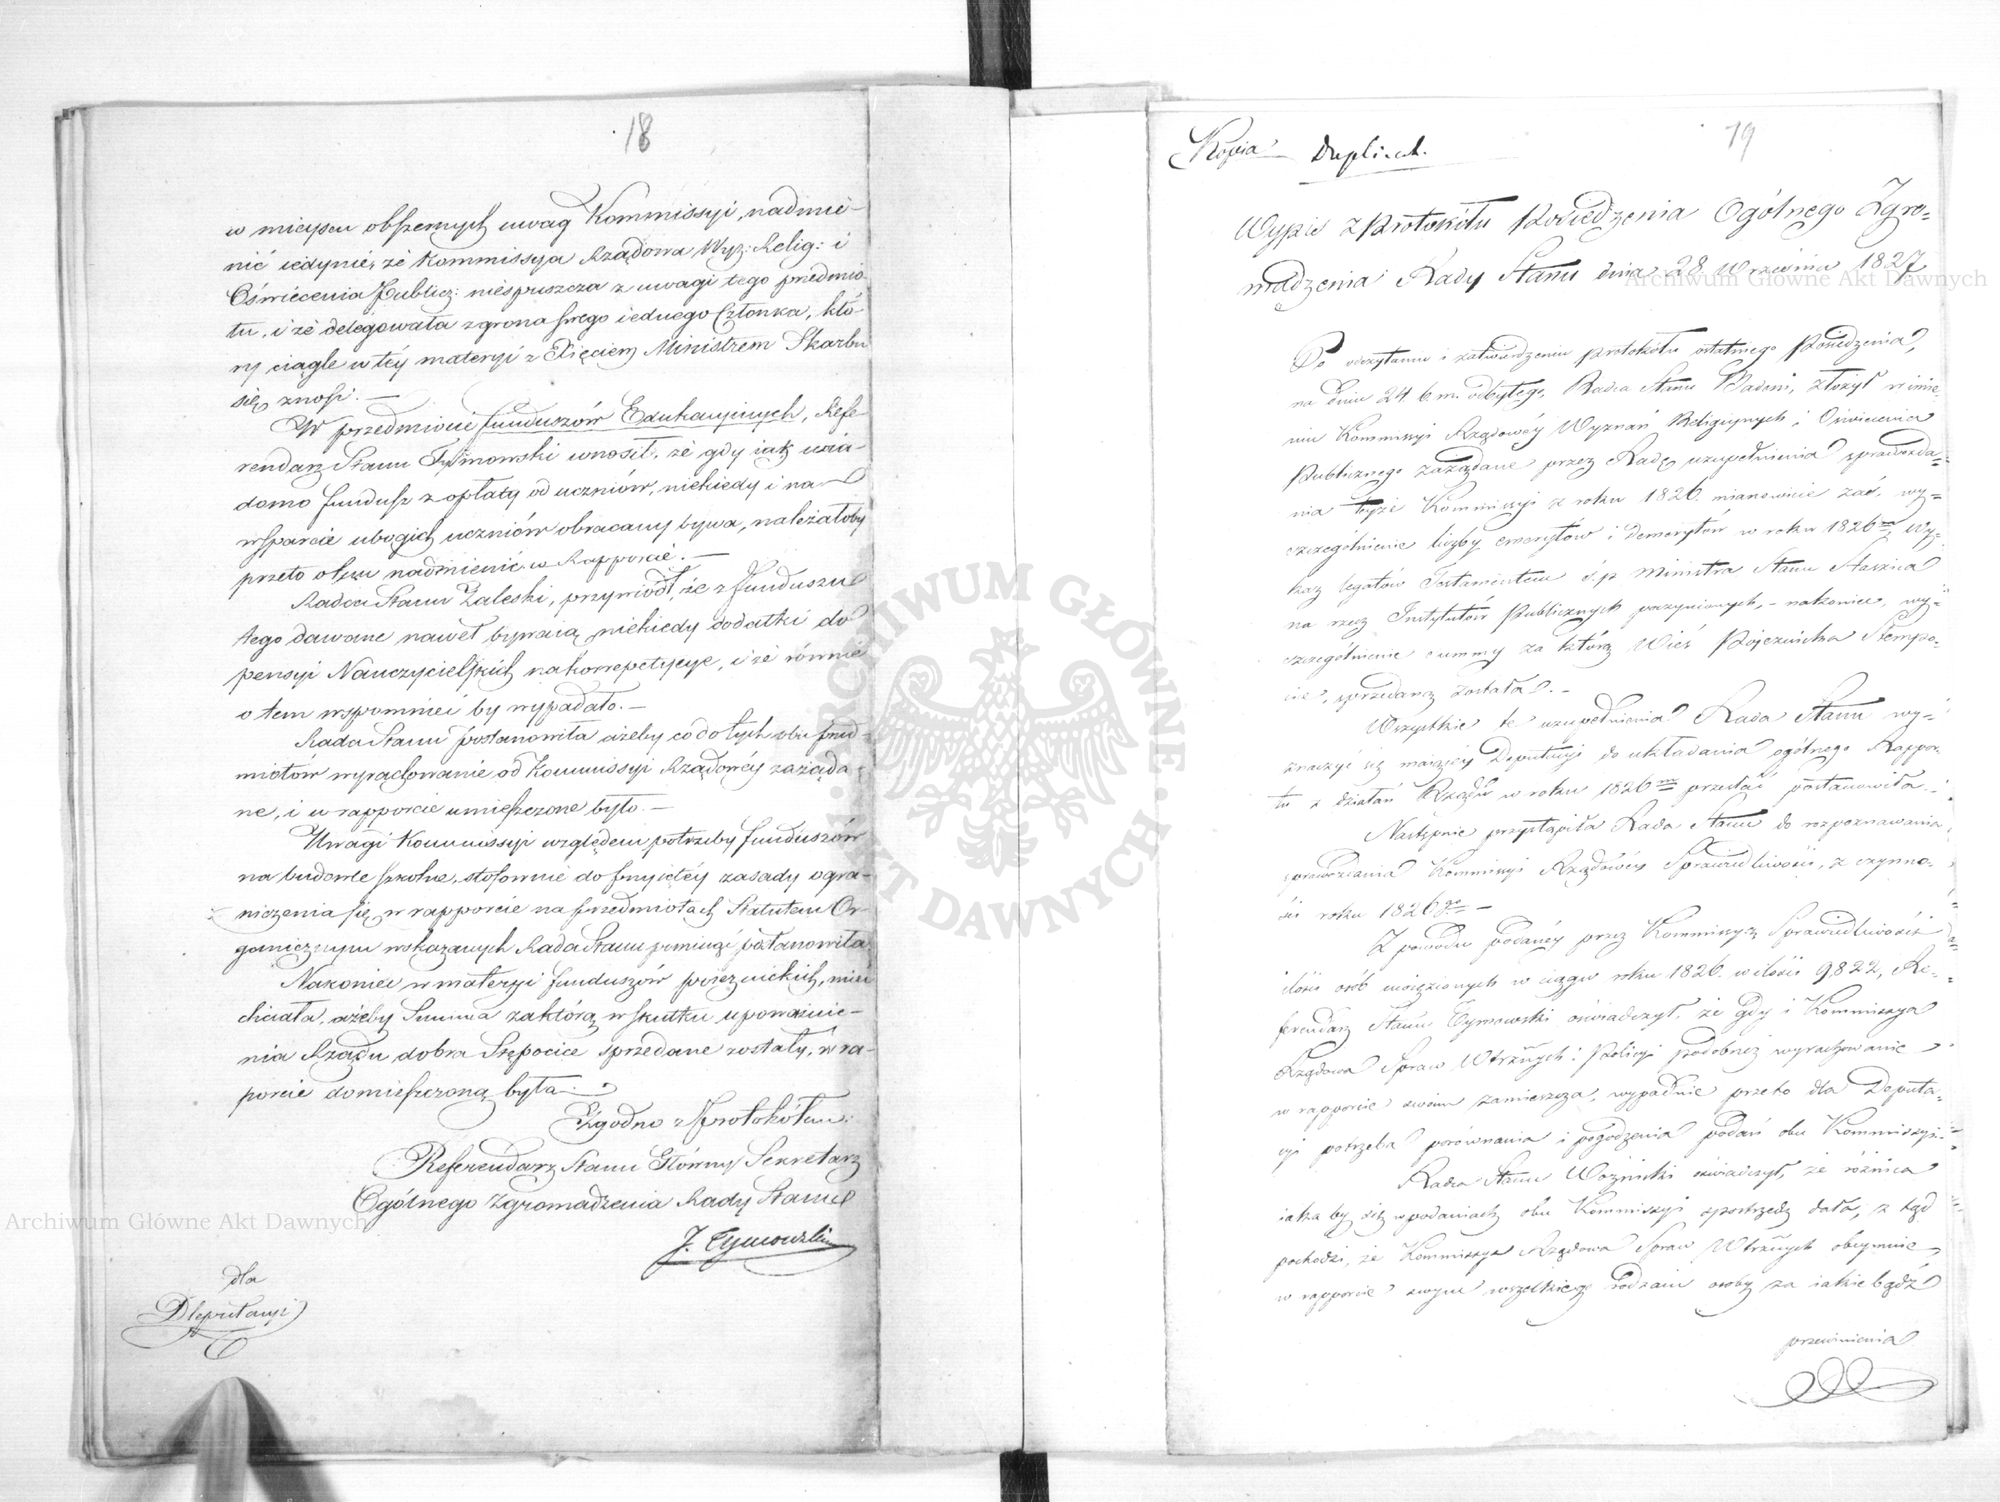 18
w miejscu obszernych uwag Kommissyi, nadmie-
nić iedynie, że Kommissya Rządowa Wyz: Relig: i
Oświecenia Publicz: niespuszcza z uwagi tego przedmio-
tu, i że delegowała z grona swego iednego Członka, któ-
ry ciągle w téy materyi z Xięciem Ministrem Skarbu
się znosi. —
W przedmiocie funduszów Edukacyinych, Refe-
rendarz Stanu Tymowski wnosił, że gdy iak wia-
domo fundusz z opłaty od uczniów, niekiedy i na
wsparcie ubogich uczniów obracany bywa, należałoby
przeto o tem nadmienić w Rapporcie. —
Radca Stanu Zaleski, przywiódł, że z funduszu
tego dawane nawet bywaią niekiedy dodatki do
pensyi Nauczycielskich na korrepetycye, i że równie
o tem wspomnieć by wypadało. —
Rada Stanu postanowiła ażeby co do tych obu przed-
miotów wyrachowanie od Kommissyi Rządowéy zażąda-
ne, i w rapporcie umieszczone było. —
Uwagi Kommissyi względem potrzeby funduszów
na budowle szkolne, stosownie do przyiętéy zasady ogra-
niczenia się w rapporcie na przedmiotach Statutem Or-
ganicznym wskazanych Rada Stanu pominąć postanowiła.
Nakoniec w materyi funduszów poiezuickich, mieć
chciała, ażeby Summa za którą w skutku upoważnie-
nia Rządu dobra Stępocice sprzedane zostały, w ra-
porcie domieszczoną była. —
Zgodno z Protokółem:
Referendarz Stanu Główny Sekretarz
Ogólnego Zgromadzenia Rady Stanu
J. Tymowski
dla
Deputacyi
Kopia Duplicat.
19
Wypis z Protokółu Posiedzenia Ogólnego Zgro-
madzenia Rady Stanu dnia 28 Września 1827
Po odczytaniu i zatwierdzeniu protokółu ostatniego Posiedzenia,
na dniu 24 b.m. odbytego, Radca Stanu Badeni, złożył w imie-
niu Kommissyi Rządowéy Wyznań Religijnych i Oświecenia
Publicznego zażądane przez Radę uzupełnienia sprawozda-
nia teyże Kommissyi z roku 1826. mianowicie zaś, wy-
szczególnienie liczby emerytów i demerytów w roku 1826m, Wy-
kaz legatów Testamentem ś.p. Ministra Stanu Staszica
na rzecz Instytutów Publicznych poczynionych, - nakoniec, wy-
szczególnienie summy za którą Wieś Pojezuicka Stempo-
cice, sprzedaną została. -
Wszystkie te uzupełnienia Rada Stanu wy-
znaczyć się maiącéy Deputacyi do układania ogólnego Rappor-
tu z działań Rządu w roku 1826m przesłać postanowiła. -
Następnie przystąpiła Rada Stanu do rozpoznawania
sprawozdania Kommissyi Rządowéy Sprawiedliwości, z czynno-
ści roku 1826go —
Z powodu podanéy przez Kommissyą Sprawiedliwości
ilości osób uwięzionych w ciągu roku 1826. w ilości 9,822, Re-
ferendarz Stanu Tymowski oświadczył, że gdy i Kommissya
Rządowa Spraw Wtrznych i Policyi podobneż wyrachowanie
w rapporcie swoim zamieszcza, wypadnie przeto dla Deputa-
cyi potrzeba porównania i pogodzenia podań obu Kommissyi. -
Radca Stanu Woźnicki oświadczył, że różnica
iaka by się w podaniach obu Kommissyi spostrzedz dała, z tąd
pochodzi, że Kommissya Rządowa Spraw Wtrznych obeymuie
w rapporcie swym wszelkiego rodzaiu osoby za iakie bądź
przewinienia
ARCHIWUM GŁÓWNE AKT DAWNYCH
Archiwum Główne Akt Dawnych
Archiwum Główne Akt Dawnych